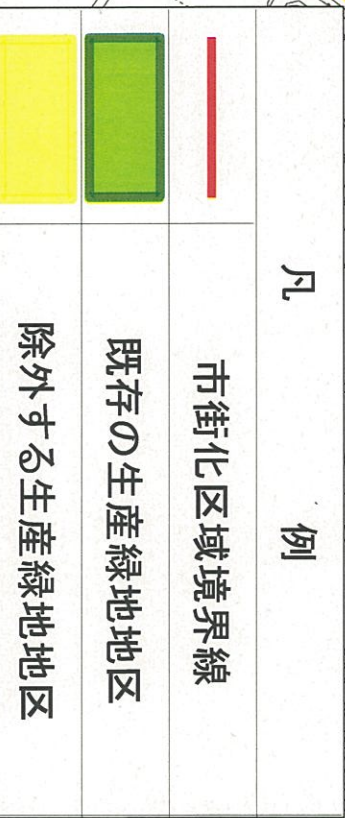 凡例
市街化区域境界線
既存の生産緑地地区
除外する生産緑地地区